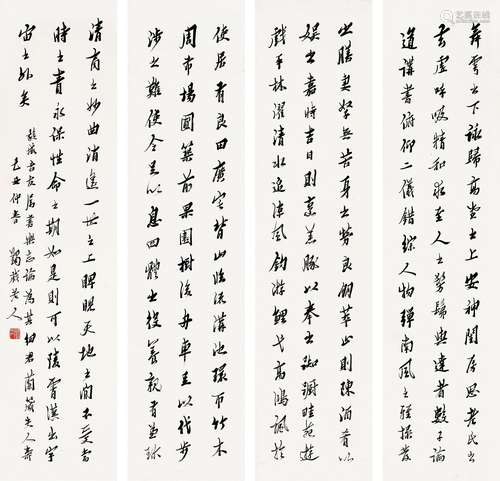 使居有良田廣宅背山臨流溝池環帀竹木
周布場圃築前果園樹後舟車足以代步
涉之難使令足以息四體之役養親有兼珍
之膳妻孥無苦身之勞良朋萃止則陳酒肴以
娛之嘉時吉日則烹羔豚以奉之躊躇畦苑遊
戲平林濯清水追涼風釣游鯉弋高鴻諷於
舞雩之下詠歸高堂之上安神閨房思老氏之
玄虛呼吸精和求至人之髣髴與達者數子論
道講書俯仰二儀錯綜人物彈南風之雅操發
清商之妙曲逍遙一世之上睥睨天地之間不受當
時之責永保性命之期如是則可以陵霄漢出宇
宙之外矣
屬書樂志論為其
仲春 老人